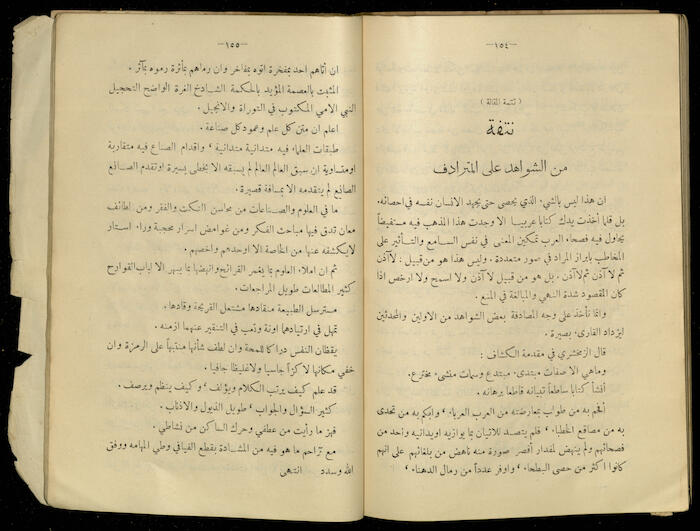 —١٥٤—
( تتمة المقالة )
نتفة
من الشواهد على المترادف
ان هذا ليس بالشيء الذي يحصى حتى يجهد الانسان نفسه في احصائه.
بل قلما أخذت يدك كتابا عربيا الا وجدت هذا المذهب فيه مستفيضاً
يحاول فيه فصحاء العرب تمكين المعنى في نفس السامع والتأثير على
المخاطب بابراز المراد في صور متعددة . وليس هذا هو من قبيل : لا آذن
ثم لا آذن ثم لا آذن . بل هو من قبيل لا آذن ولا اسمح ولا ارخص اذا
كان المقصود شدة النهي والمبالغة في المنع .
وانا نأخذ على وجه المصادفة بعض الشواهد من الاولين والمحدثين
ليزداد القارىء بصيرة .
قال الزمخشري في مقدمة الكشاف :
وما هي الا صفات مبتدىء مبتدع وسمات منشىء مخترع .
أفشأ كتابا ساطعاً تبيانه قاطعا برهانه .
أفحم به من طولب بمعارضته من العرب العرباء ، وابكم به من تحدى
به من مصاقع الخطباء ، فلم يتصد للاتيان بما يوازيه او يدانيه واحد من
فصحائهم ولم ينهض لمقدار أقصر صورة منه ناهض من بلغائهم على انهم
كانوا اكثر من حصى البطحاء ، واوفر عدداً من رمال الدهناء ،
—١٥٥—
ان أتاهم احد بمفخرة اتوه بمفاخر وان رماهم بمأثرة رموه بمآثر .
المثبت بالعصمة المؤيد بالحكمة الشادخ الغرة الواضح التحجيل
النبي الامي المكتوب في التوراة والانجيل .
اعلم ان متن كل علم وعمود كل صناعة .
طبقات العلماء فيه متدانية متدانية ، واقدام الصناع فيه متقاربة
او متساوية ان سبق العالم العالم لم يسبقه الا بخطى يسيرة او تقدم الصانع
الصانع لم يتقدمه الا بمسافة قصيرة .
ما في العلوم والصناعات من محاسن النكت والفقر ومن لطائف
معان تدق فيها مباحث الفكر ومن غوامض اسرار محجبة وراء استار
لا يكشفه عنها من الخاصة الا اوحدهم واخصهم .
ثم ان املاء العلوم بما يغمر القرائح وانهضها بما يبهر الالباب القوارح
كثير المطالعات طويل المراجعات .
مسترسل الطبيعة منقادها مشتعل القريحة وقادها .
تمهل في ارتيادهما اونة وتعب في التنقير عنهما ازمنه .
يقظان النفس دراكا للمحة وان لطف شأنها منتبهاً على الرمزة وان
خفي مكانها لا كزاً جاسيا ولا غليظا جافيا .
قد علم كيف يرتب الكلام ويؤلف ، وكيف ينظم ويرصف .
كثير السؤال والجواب ، طويل الذيول والاذناب .
فهز ما رأيت من عطفي وحرك الساكن من نشاطي .
مع تزاحم ما هو فيه من المشادة بقطع الفيافي وطي المهامه ووفق
الله وسدد انتهى